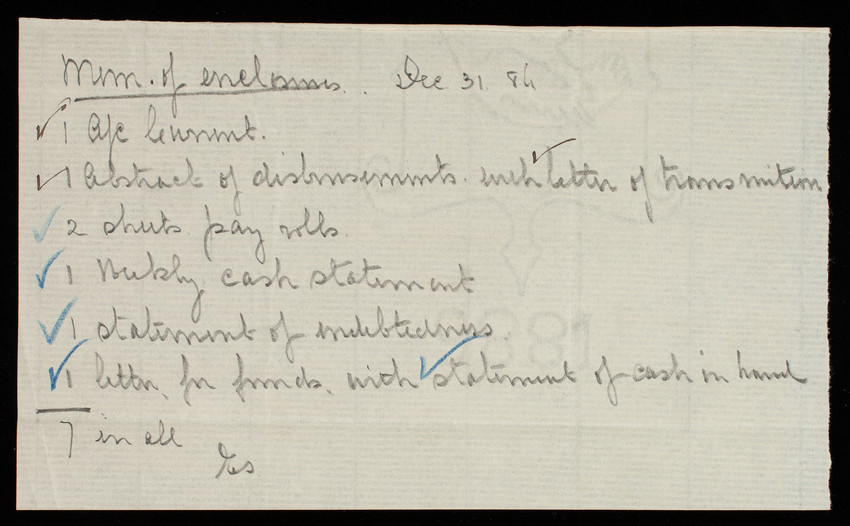 Mem. of enclosures. Dec 31. 84
1 A/c Current.
1 Abstract of disbursements. with letter of transmition
2 sheets pay rolls.
1 Weekly cash statement
1 statement of indebtedness.
1 letter, for funds, with statement of cash in hand
7 in all